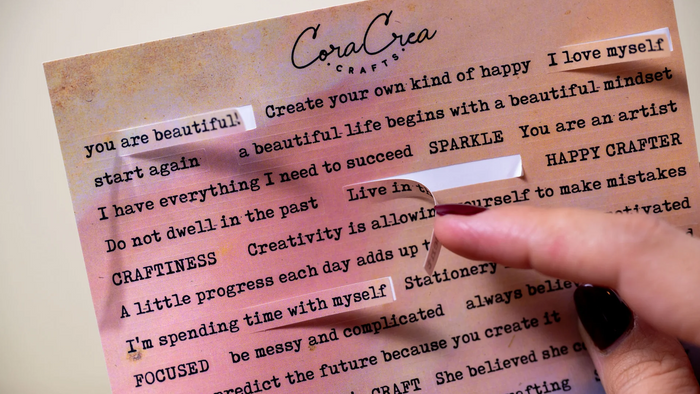 CoraCrea
CRAFTS
you are beautiful! Create your own kind of happy I love myself
start again a beautiful life begins with a beautiful mindset
I have everything I need to succeed SPARKLE You are an artist
Do not dwell in the past Live in HAPPY CRAFTER
CRAFTINESS Creativity is allowing yourself to make mistakes
A little progress each day adds up
I'm spending time with myself Stationery
FOCUSED be messy and complicated always
predict the future because you create it
CRAFT She believed she